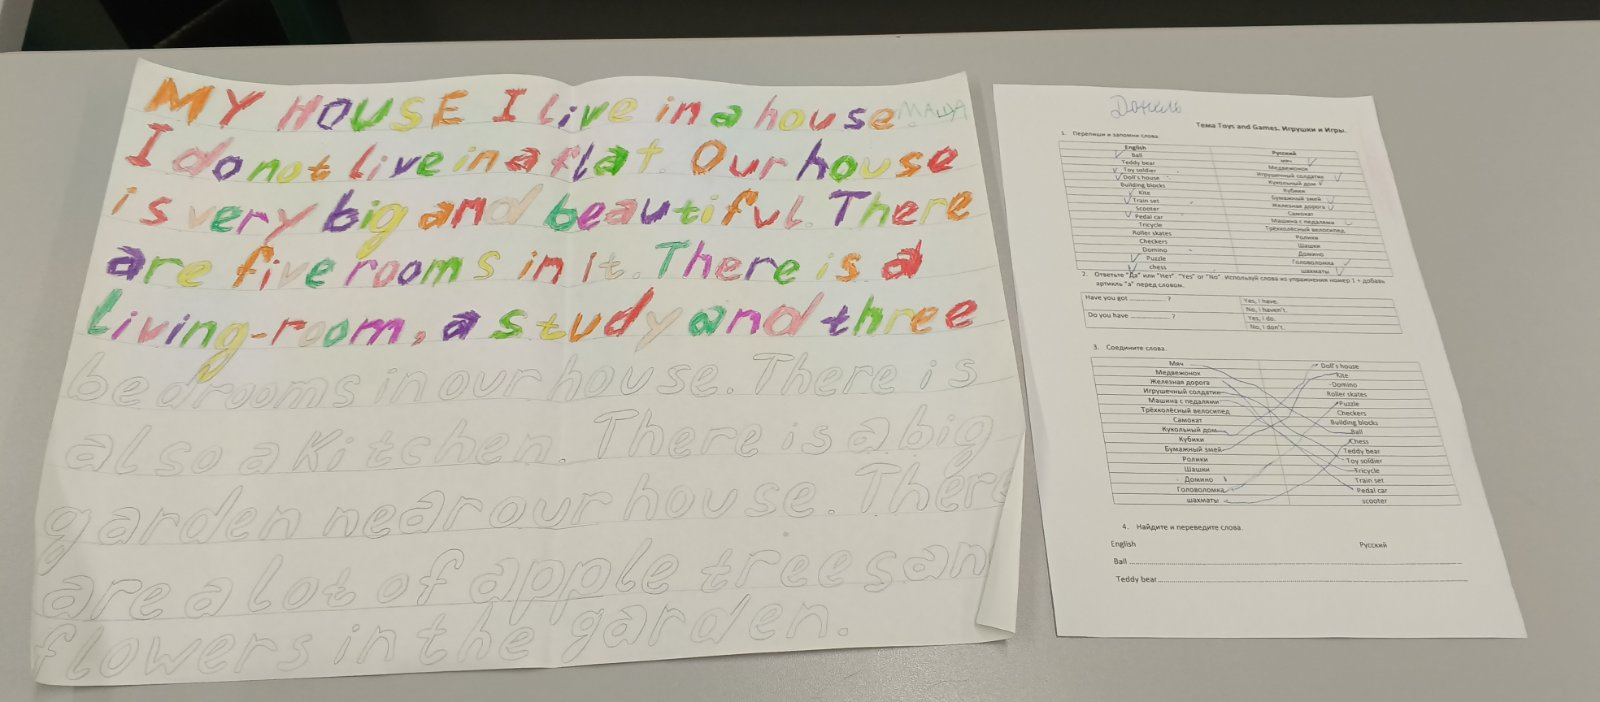 MY HOUSE I live in a house МАША
I do not live in a flat. Our house
is very big and beautiful. There
are five rooms in it. There is a
living-room, a study and three
bedrooms in our house. There is
also a kitchen. There is a big
garden near our house. There
are a lot of apple trees an
flowers in the garden.
Даниль
Тема Toys and Games. Игрушки и Игры.
1. Перепиши и запомни слова
English Русский
Ball мяч
Teddy bear Медвежонок
Toy soldier Игрушечный солдатик
Doll's house Кукольный дом
Building blocks Кубики
Kite Бумажный змей
Train set Железная дорога
Scooter Самокат
Pedal car Машина с педалями
Tricycle Трёхколёсный велосипед
Roller skates Ролики
Checkers Шашки
Domino Домино
Puzzle Головоломка
chess шахматы
2. Ответьте "Да" или "Нет" "Yes" or "No" Используй слова из упражнения номер 1 + добавь
артикль "a" перед словом.
Have you got ............... ? Yes, I have.
No, I haven't.
Do you have ............... ? Yes, I do.
No, I don't.
3. Соедините слова.
Мяч Doll's house
Медвежонок Kite
Железная дорога Domino
Игрушечный солдатик Roller skates
Машина с педалями Puzzle
Трёхколёсный велосипед Checkers
Самокат Building blocks
Кукольный дом Ball
Кубики Chess
Бумажный змей Teddy bear
Ролики Toy soldier
Шашки Tricycle
Домино Train set
Головоломка Pedal car
шахматы scooter
4. Найдите и переведите слова.
English Русский
Ball
Teddy bear